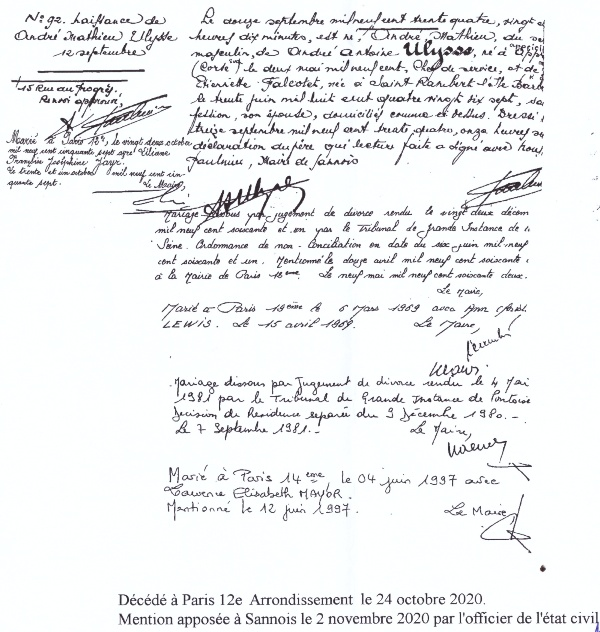 N° 92. Naissance de
André Mathieu Ulysse
12 septembre
15 Rue du Progrès.
Renvoi approuvé,
Marié à Paris 16e, le vingt deux octobre
mil neuf cent cinquante sept avec Liliane
Françoise Joséphine
Le trente et un octobre mil neuf cent cin-
quante sept. Le Maire,
Le douze septembre mil neuf cent trente quatre, vingt
heures dix minutes, est né, André Mathieu, du se
masculin, de André Antoine Ulysse, né à
(Corse) le deux mai mil neuf cent, Chef de service, et de
Pierrette Falcoz, née à Saint Rambert l'Ile Bar
le trente juin mil huit cent quatre vingt dix sept, sa
fession, son épouse, domiciliés comme ci-dessus. Dressé
treize septembre mil neuf cent trente quatre, onze heures
déclaration du père qui lecture faite a signé avec nous,
Maire de Sannois
Mariage dissous par jugement de divorce rendu le vingt deux décem
mil neuf cent soixante et un par le Tribunal de Grande Instance de l
Seine. Ordonnance de non-Conciliation en date du six juin mil neuf
cent soixante et un. Mentionné le douze avril mil neuf cent soixante
à la Mairie de Paris 16ème. Le neuf mai mil neuf cent soixante deux.
Le Maire,
Marié à Paris 19ème le 6 Mars 1969 avec Ann
LEWIS. Le 15 avril 1969. Le Maire,
Mariage dissous par Jugement de divorce rendu le 4 Mai
1981 par le Tribunal de Grande Instance de Pontoise
Décision de Résidence séparée du 9 Décembre 1980.-
Le 7 Septembre 1981.- Le Maire,
Marié à Paris 14ème, le 04 juin 1997 avec
Laurence Elisabeth MAYOR.
Mentionné le 12 juin 1997. Le Maire,
Décédé à Paris 12e Arrondissement le 24 octobre 2020.
Mention apposée à Sannois le 2 novembre 2020 par l'officier de l'état civil